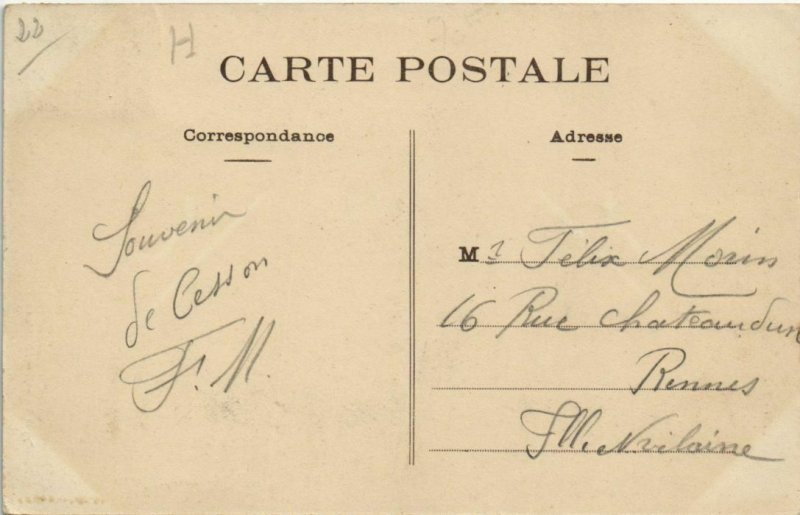 22
H
CARTE POSTALE
Correspondance
Souvenir
de Cesson
F. M.
Adresse
Mr Félix Morin
16 Rue Chateaudun
Rennes
Ille Vilaine